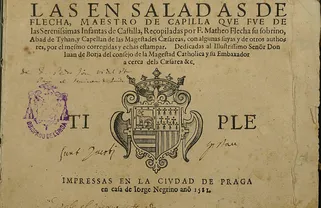 LAS EN SALADAS DE
FLECHA, MAESTRO DE CAPILLA QVE FVE DE
las Serenissimas Infantas de Castilla, Recopiladas por F. Matheo Flecha su sobrino,
Abad de Tyhan, y Capellan de las Magestades Cæsareas, con algunas suyas y de otros autho
res, por el mesmo corregidas y echas estampar. Dedicadas al Illustrissimo Señor Don
Iuan de Borja del consejo de la Magestad Catholica y su Embaxador
a cerca dela Cæsarea &c,
TI PLE
IMPRESSAS EN LA CIVDAD DE PRAGA
en casa de Iorge Negrino año 1581.